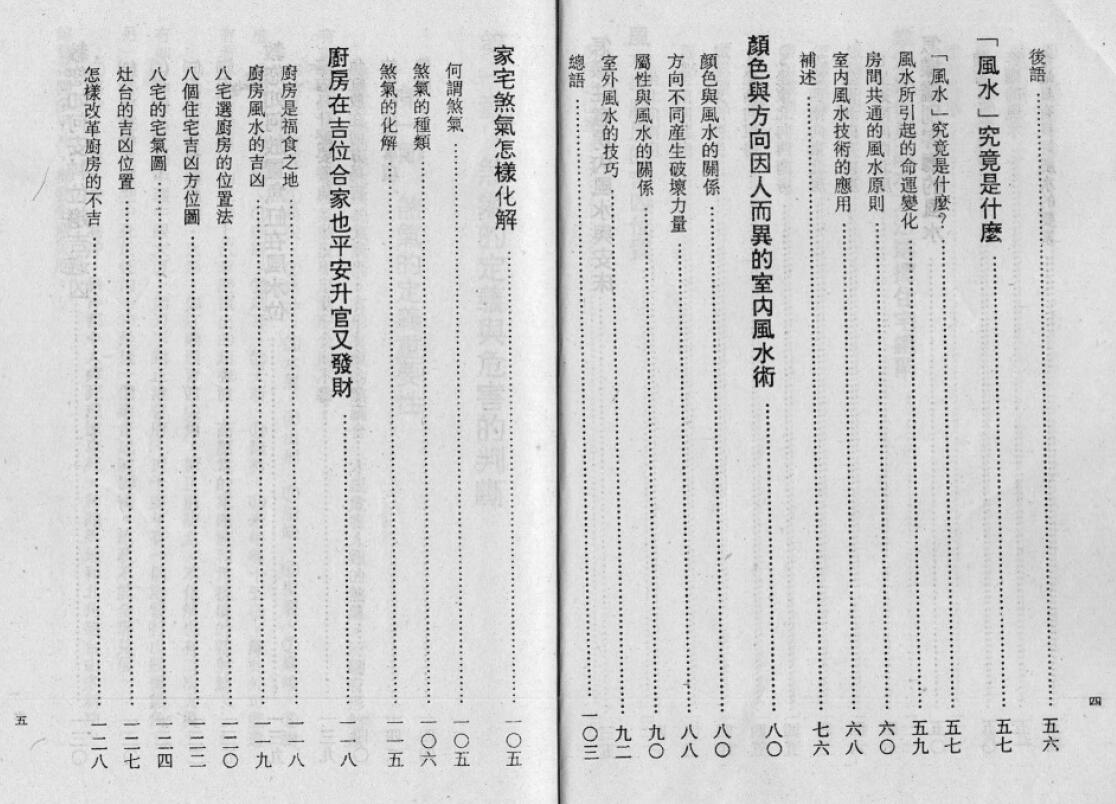 後語……五六
「風水」究竟是什麼……五七
「風水」究竟是什麼?……五七
風水所引起的命運變化……五九
房間共通的風水原則……六〇
室內風水技術的應用……六八
補述……七六
顏色與方向因人而異的室內風水術……八〇
顏色與風水的關係……八〇
方向不同產生破壞力量……八八
屬性與風水的關係……九〇
室外風水的技巧……九二
總語……一〇三
四
家宅煞氣怎樣化解……一〇五
何謂煞氣……一〇五
煞氣的種類……一〇六
煞氣的化解……一一五
廚房在吉位合家也平安升官又發財……一一八
廚房是福食之地……一一八
廚房風水的吉凶……一一九
八宅選廚房的位置法……一二〇
八個住宅吉凶方位圖……一二二
八宅的宅氣圖……一二四
灶台的吉凶位置……一二七
怎樣改革廚房的不吉……一二八
五